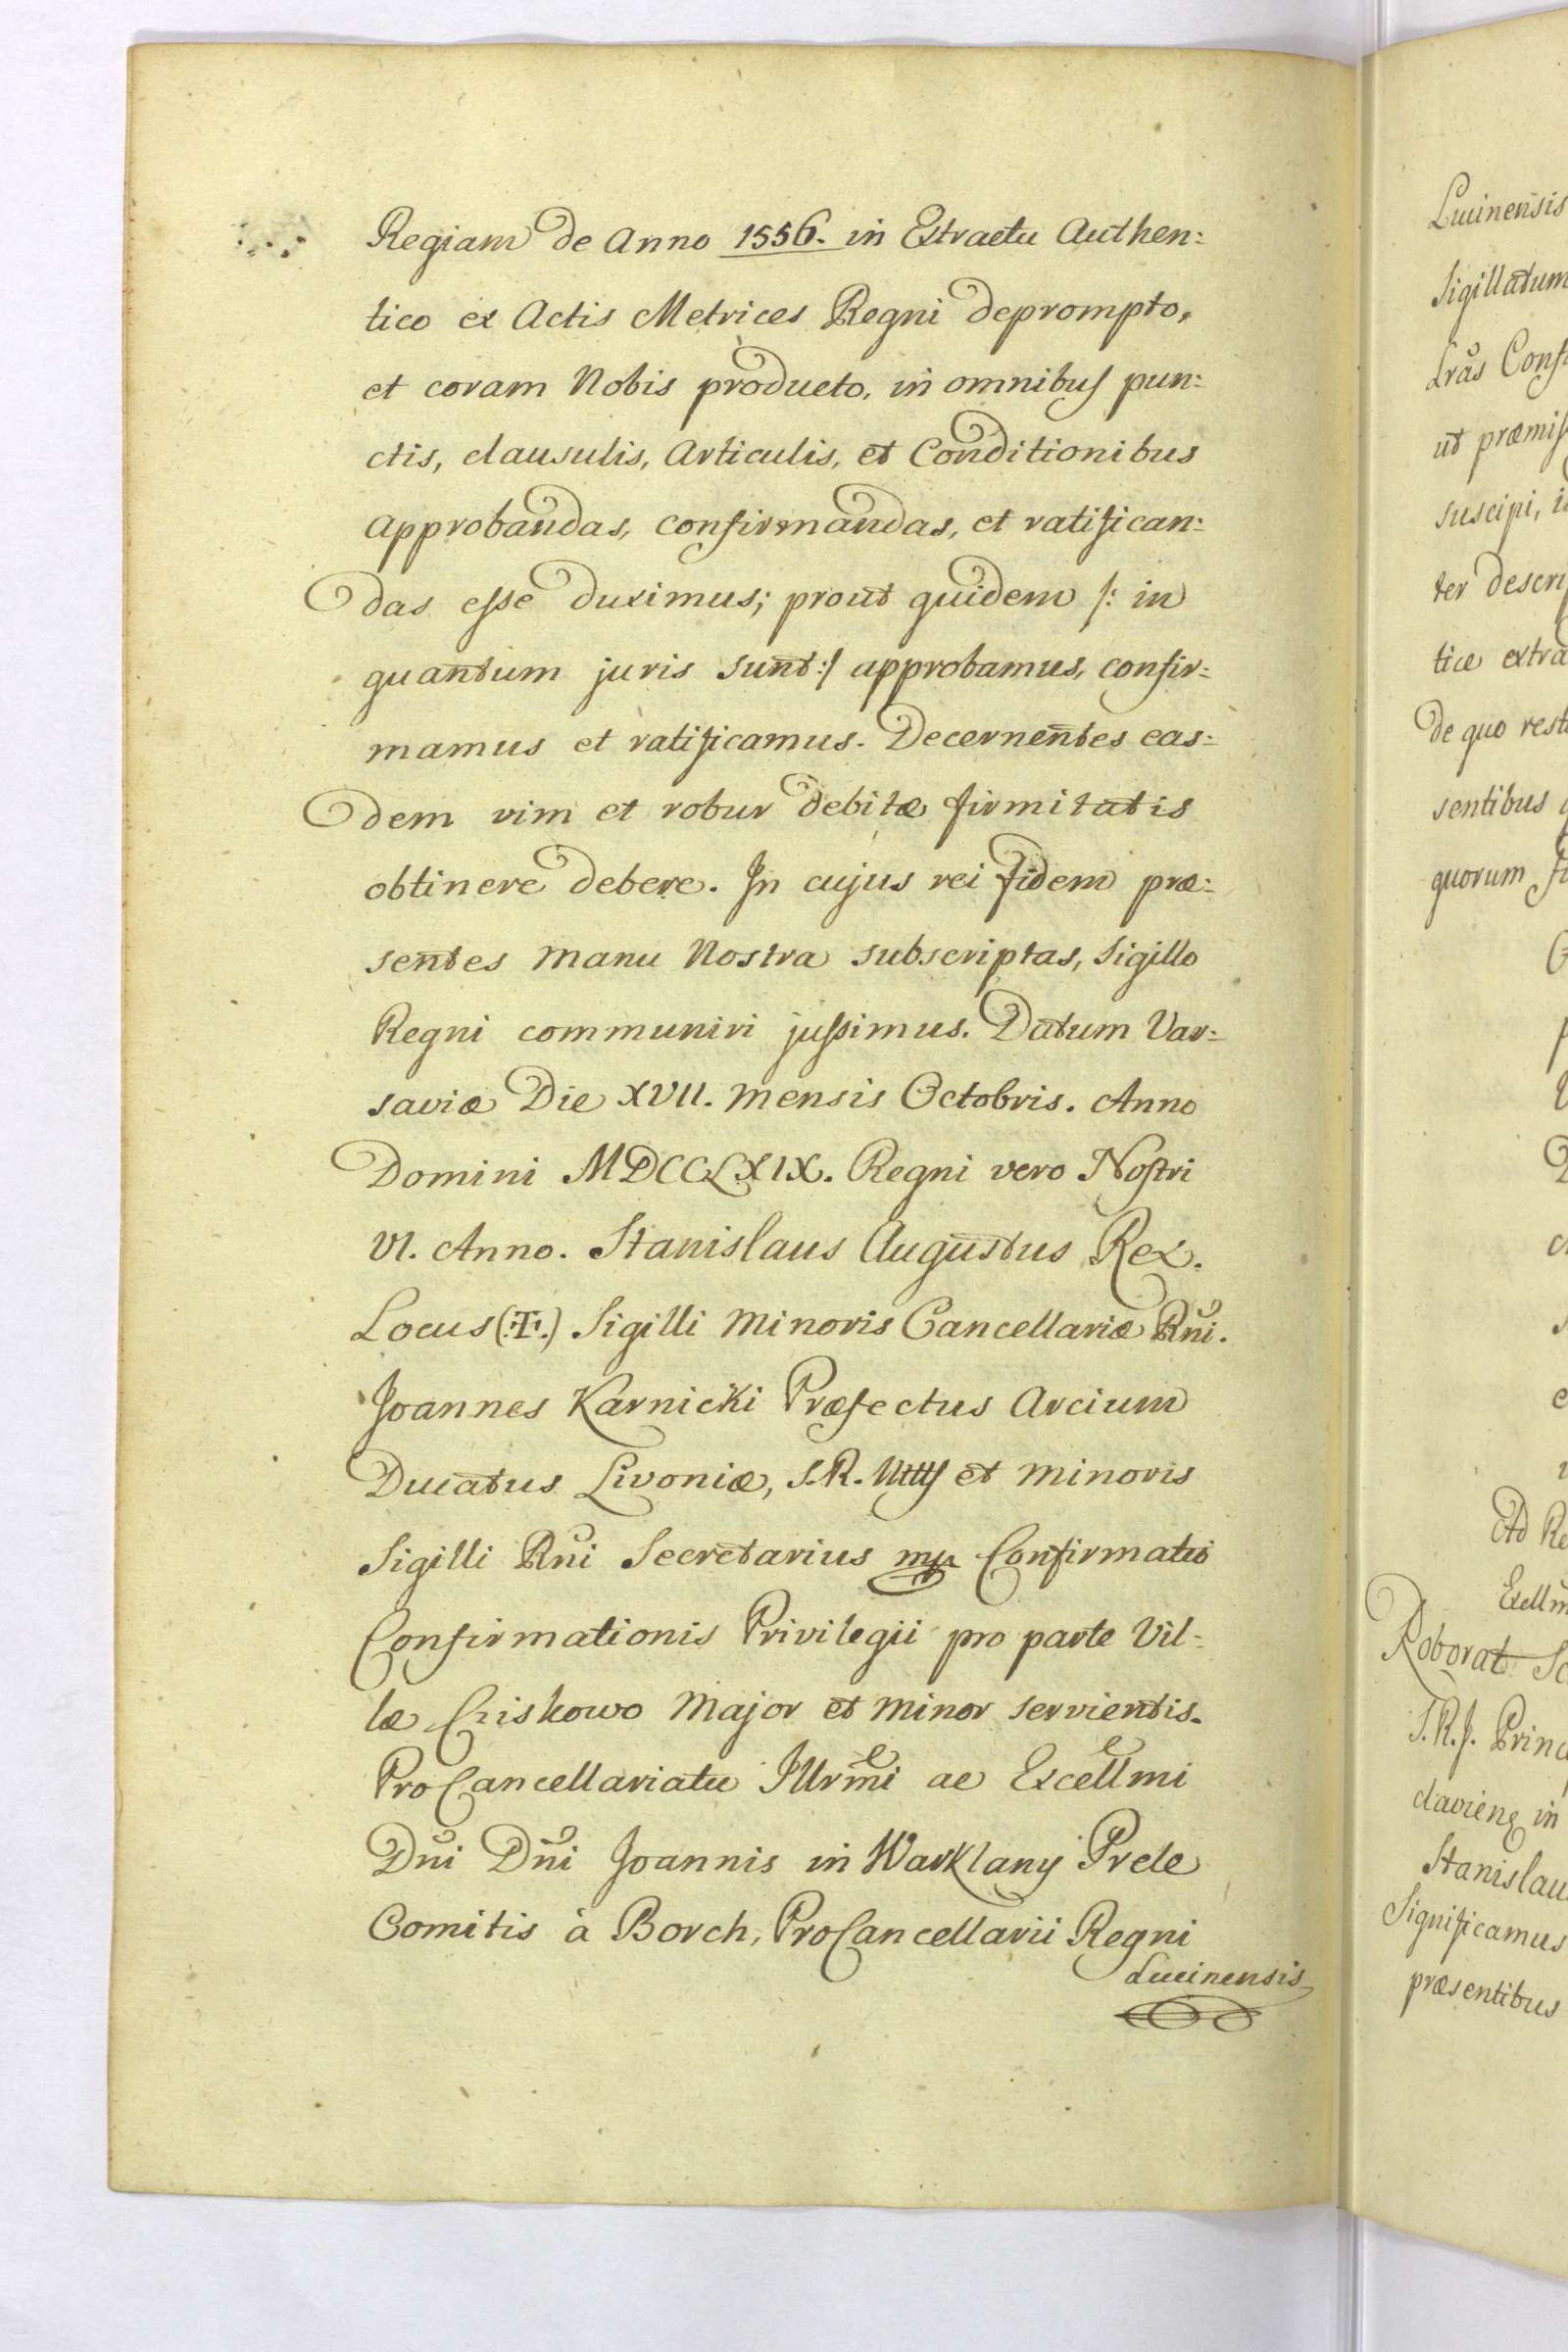 Regiam de Anno 1556. in Extractu Authen:
tico ex Actis Metrices Regni deprompto,
et coram Nobis producto, in omnibus pun:
ctis, clausulis, Articulis, et Conditionibus
approbandas, confirmandas, et ratifican:
das esse duximus; prout quidem /: in
quantum juris sunt :/ approbamus, confir:
mamus et ratificamus. Decernentes eas:
dem vim et robur debitæ firmitatis
obtinere debere. In cujus rei fidem præ:
sentes manu Nostra subscriptas, Sigillo
Regni communiri jussimus. Datum Var:
saviæ Die XVII. mensis Octobris. Anno
Domini MDCCLXIX. Regni vero Nostri
VI. Anno. Stanislaus Augustus Rex.
Locus (.T.) Sigilli Minoris Cancellariæ Rni.
Joannes Karnicki Præfectus Arcium
Ducatus Livoniæ, S. R. et minoris
Sigilli Rni Secretarius mp Confirmatio
Confirmationis Privilegii pro parte Vil:
læ Cziskowo Major et minor servientis.
ProCancellariatu Illrmi ac Excellmi
Dni Dni Joannis in Warklany Prele
Comitis à Borch, ProCancellarii Regni
Lucinensis
Lucinensis
Sigillatum
Lras
ut
suscipi,
ter
tice
de quo
sentibus
quorum
Ad
Roborat
S. R. J.
in
Significamus
præsentibus